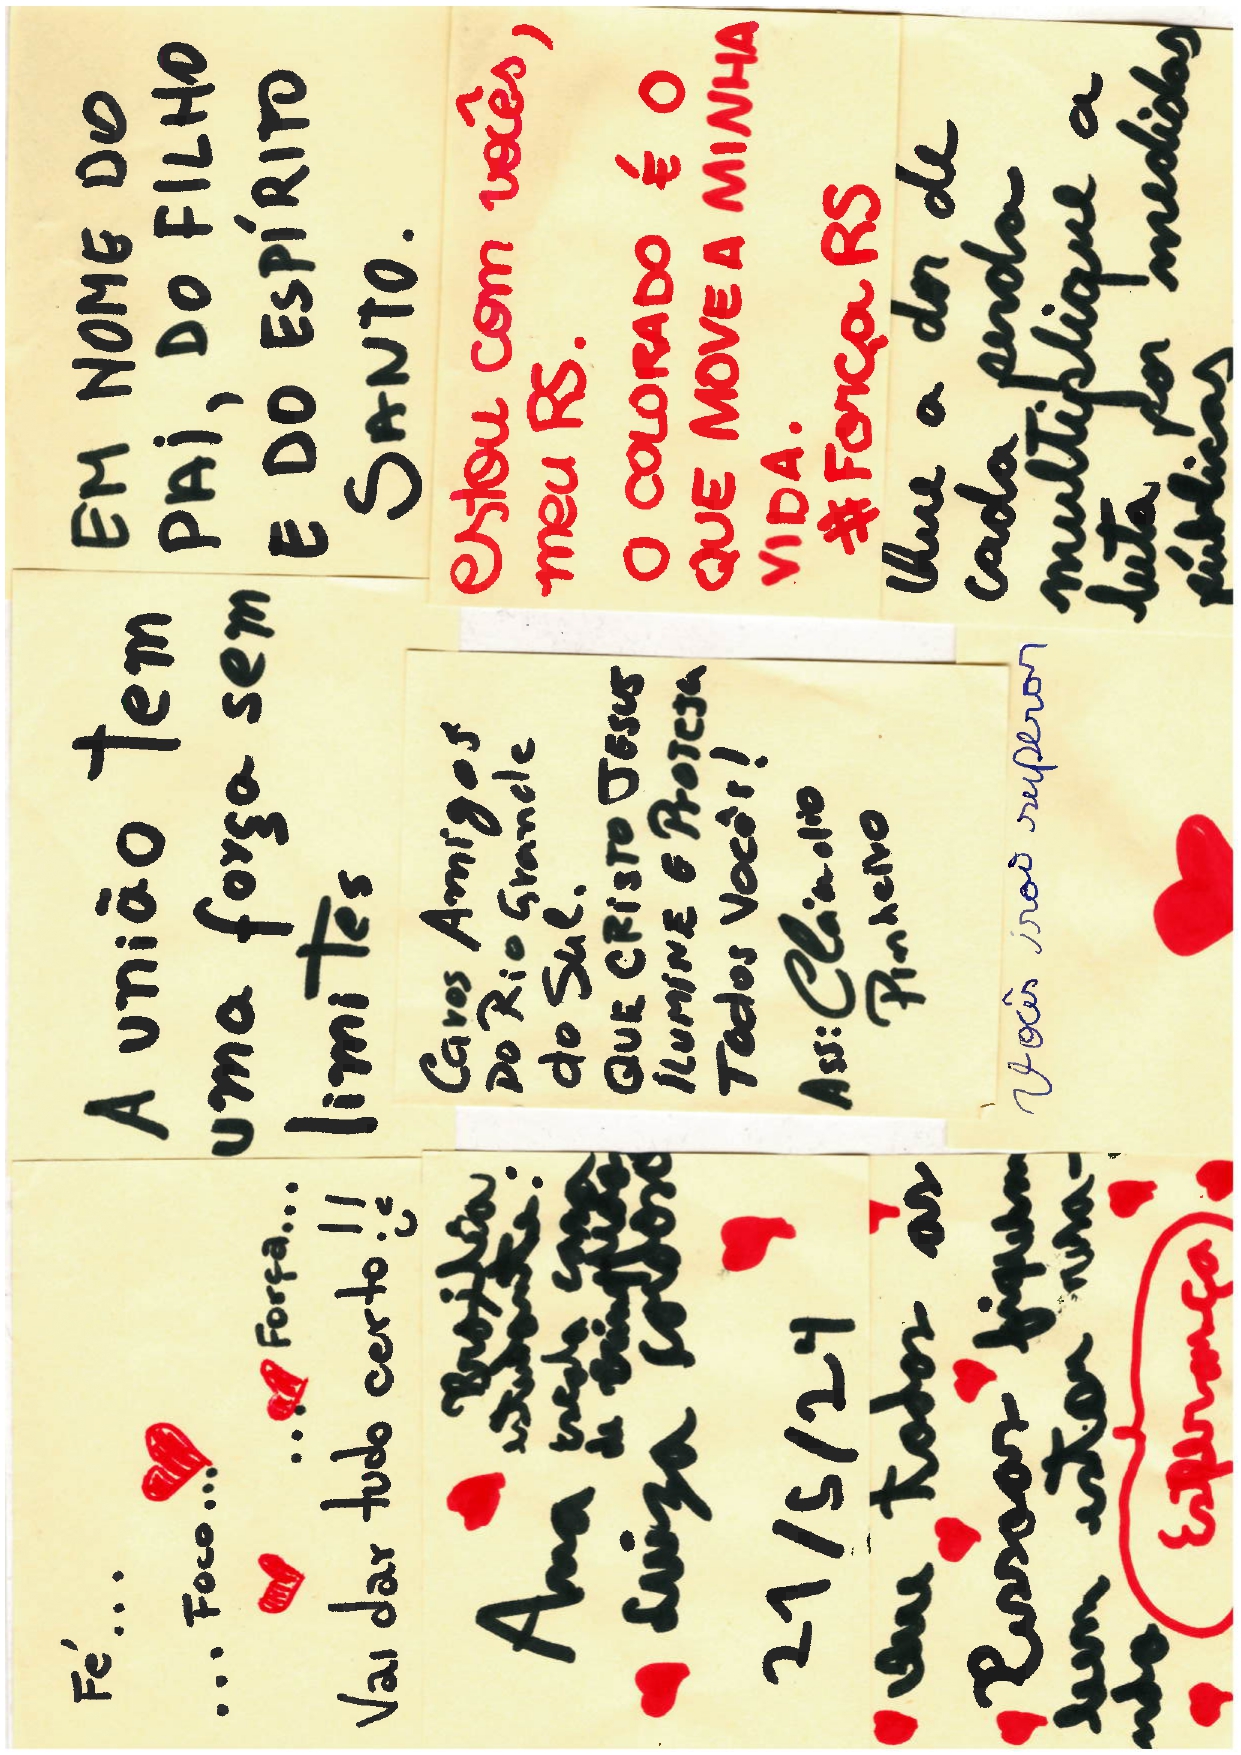 Fé...
...Foco...
...Força...
Vai dar tudo certo!!
A união tem
uma força sem
limites
EM NOME DO
PAI, DO FILHO
E DO ESPÍRITO
SANTO.
Brasília
Ana
Luiza
21/5/24
Caros Amigos
Do Rio Grande
do Sul.
QUE CRISTO JESUS
ILUMINE E PROTEJA
Todos Vocês!
Ass: Claudio
Pinheiro
estou com vocês,
meu RS.
O COLORADO É O
QUE MOVE A MINHA
VIDA.
#Força RS
Que todas as
Pessoas fiquem
bem
Esperança
Vocês irão superar
Que a dor de
cada perda
multiplique a
luta por medidas
públicas